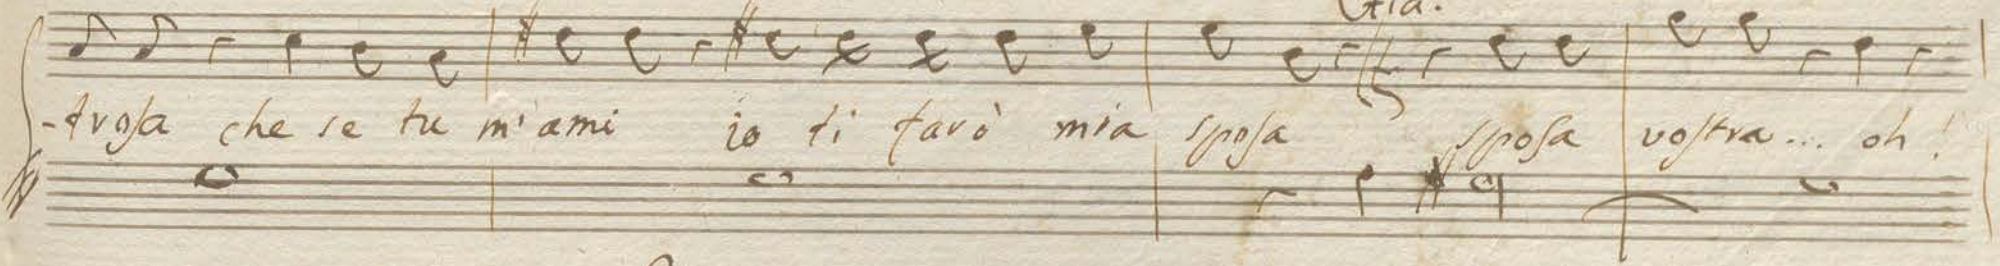 Gia.
-trosa che se tu m'ami io ti farò mia sposa sposa vostra... oh!